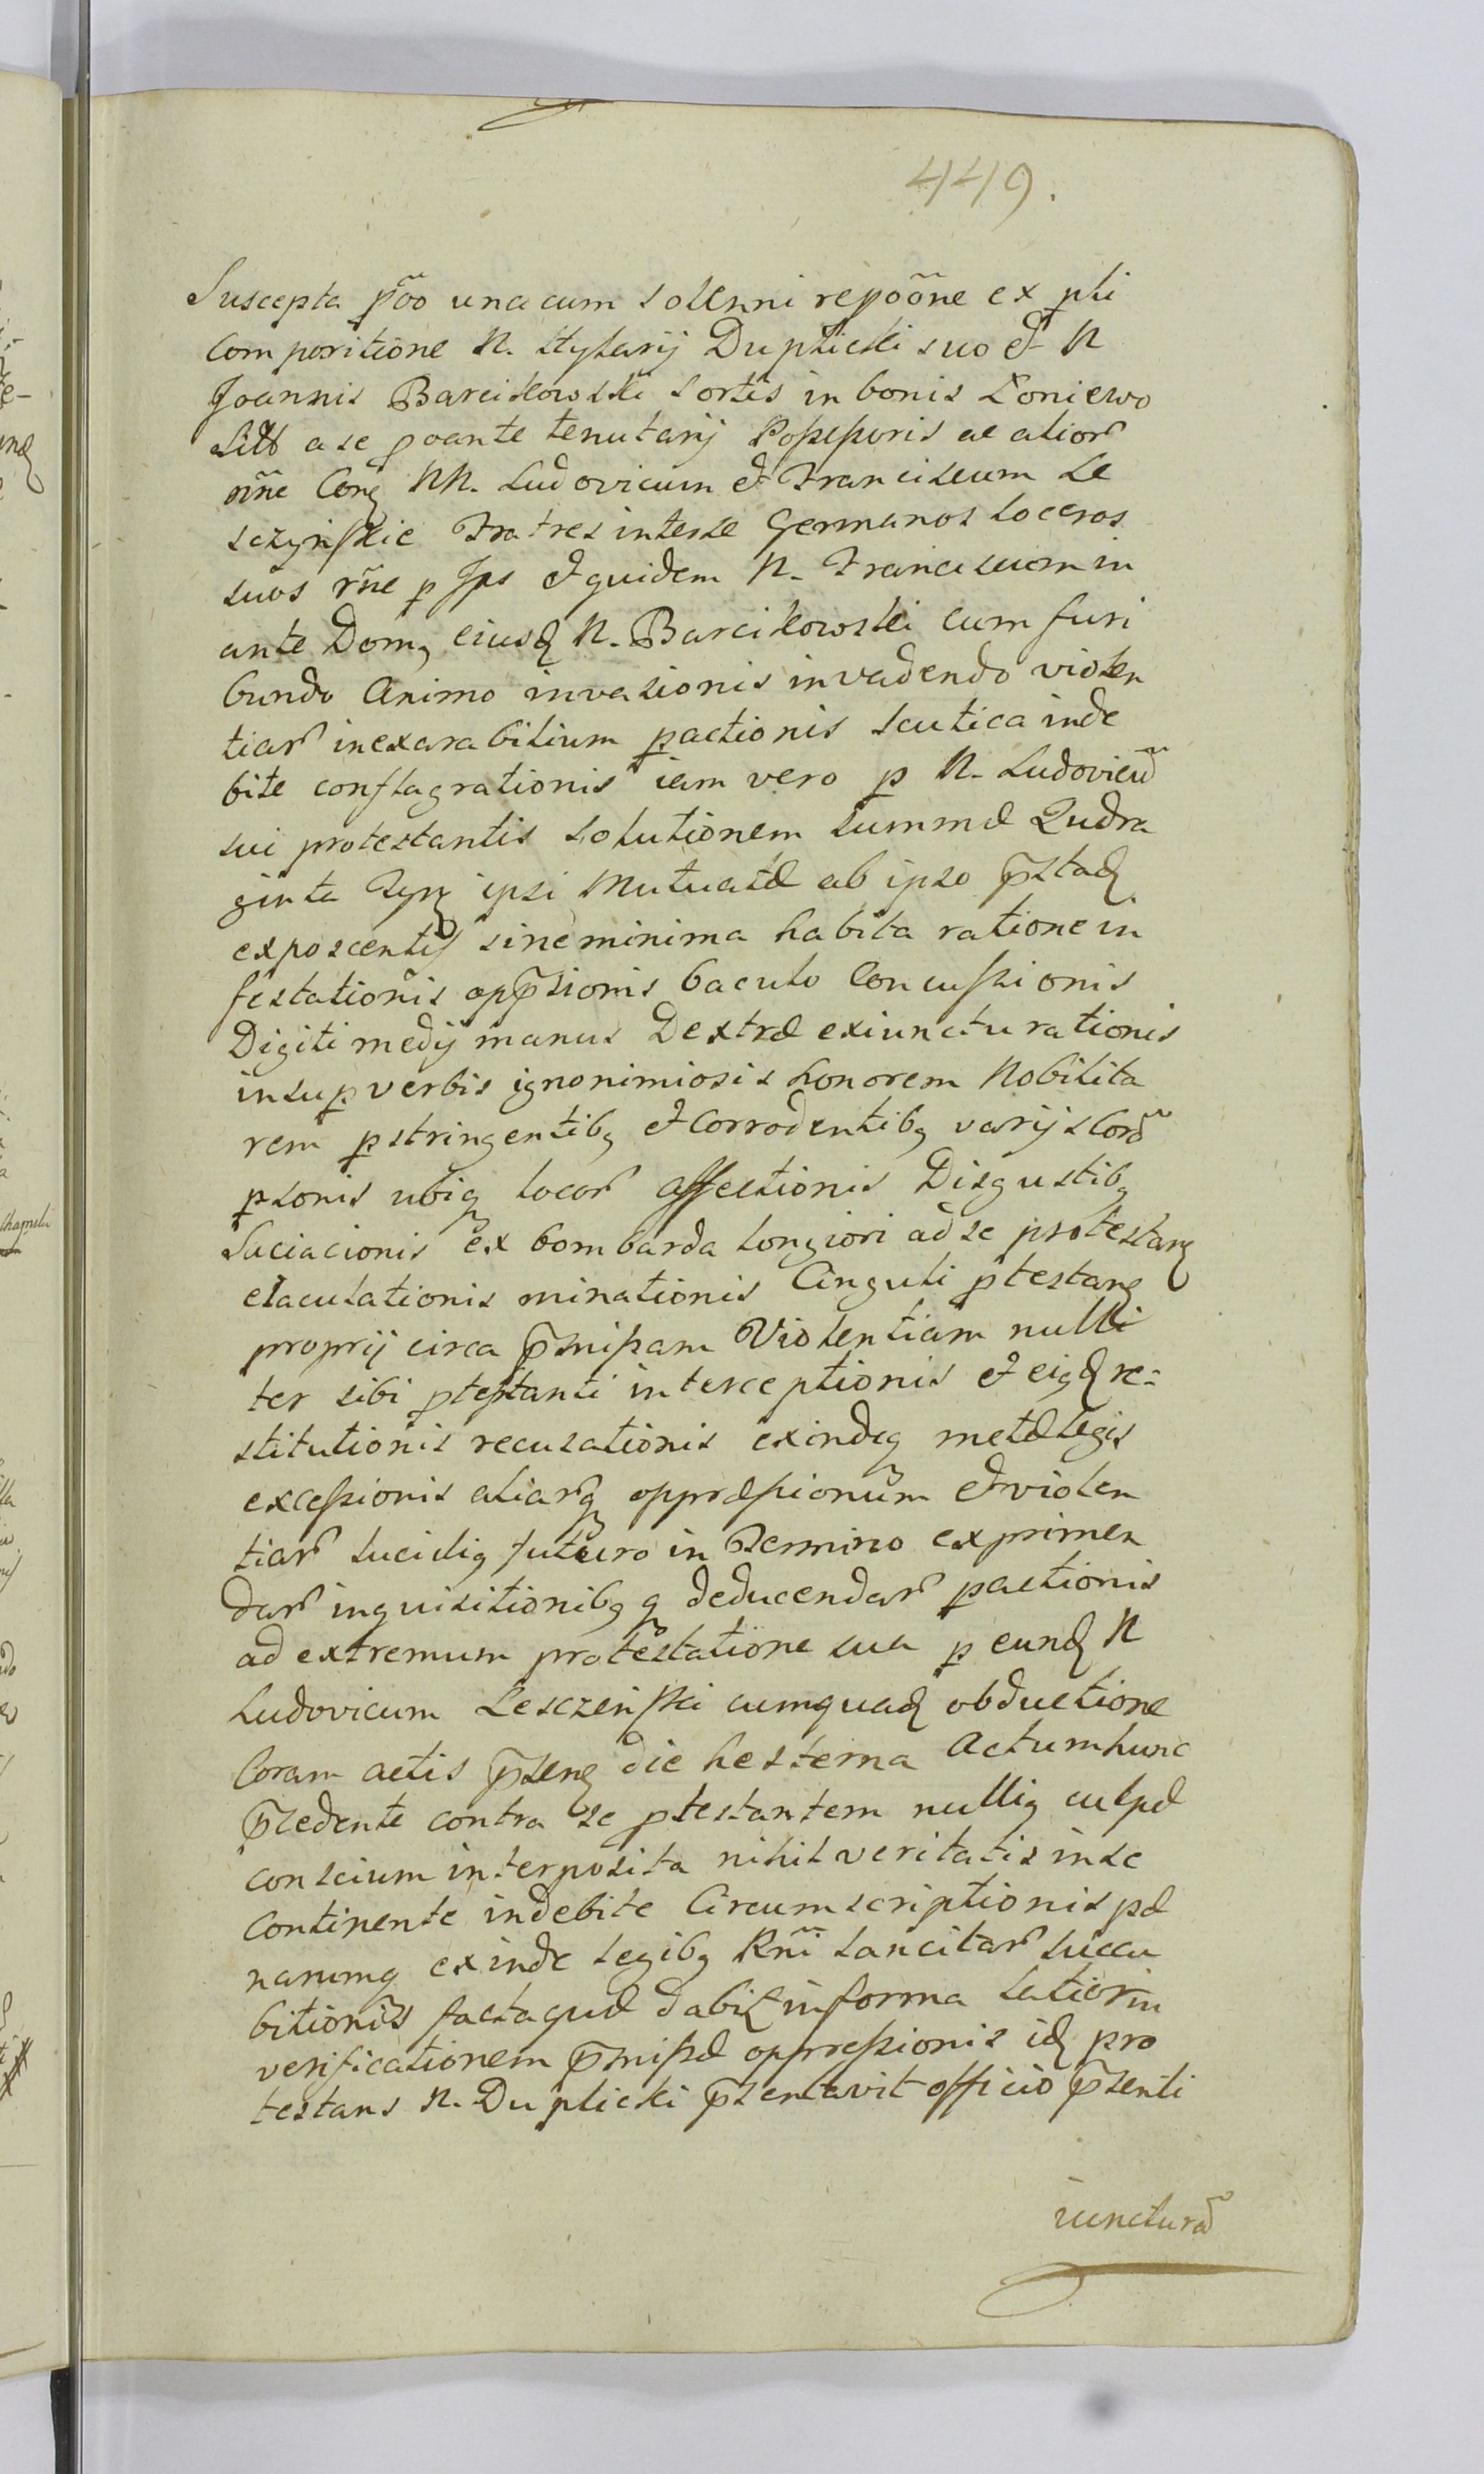 449.
Suscepta p̃oo una cum solenni repõõne ex pti
Compositione N. Hylarij Duplicki suo et N
Joannis Barcikowski sortis in bonis Łoniewo
Sitt a se poante tenutarij Possessoris ac alior
nr̃ne Conq NN. Ludovicum et Franciscum Le
sczynskie Fratres interse Germanos Soceros
suos rñe p Ips et quidem N. Franciscum in
ante Domq eiusq N. Barcikowski cum furi
bundo Animo invasionis invadendo violen
tiar inexarabilium pactionis scutica inde
bite conflagrationis iam vero p N. Ludovicũ
sui protestantis solutionem summæ Qudra
ginta Tynq ipsi Mutuatæ ab ipso p̃staq
exposcentis sine minima habita ratione in
festationis opp̃sionis baculo Concussionis
Digiti medij manus Dextræ exiuncturationis
insup verbis ignonimiosis honorem Nobilita
rem pstringentibq et corrodentibq varijs Corã
psonis ubiq locor affectionis Disgustibq
Saciacionis ex bombarda longiori ad se protestanq
eiaculationis minationis Cinguli ptestanq
proprij circa p̃missam Violentiam nulli
ter sibi ptestanti interceptionis et eiqq re-
stitutionis recusationis exindeq metæ legis
excessionis aliarq oppræssionum et violen
tiar lucidiq futuro in Termino exprimen
dar inquisitionibq q deducendar pactionis
ad extremum protestatione sua p eunq N
Ludovicum Lesczenski cumquaq obductione
Coram actis p̃senq die hesterna Actum hunc
p̃cedente contra se ptestantem nulliq culpæ
conscium interposita nihil veritatis in se
continente indebite Circumscriptionis pæ
narumq exinde legibq Rni sancitar succu
bitionis facta quæ dabit in forma latior in
verificationem p̃missæ oppressionis iq pro
testans N. Duplicki p̃sentavit officio p̃senti
iuncturã